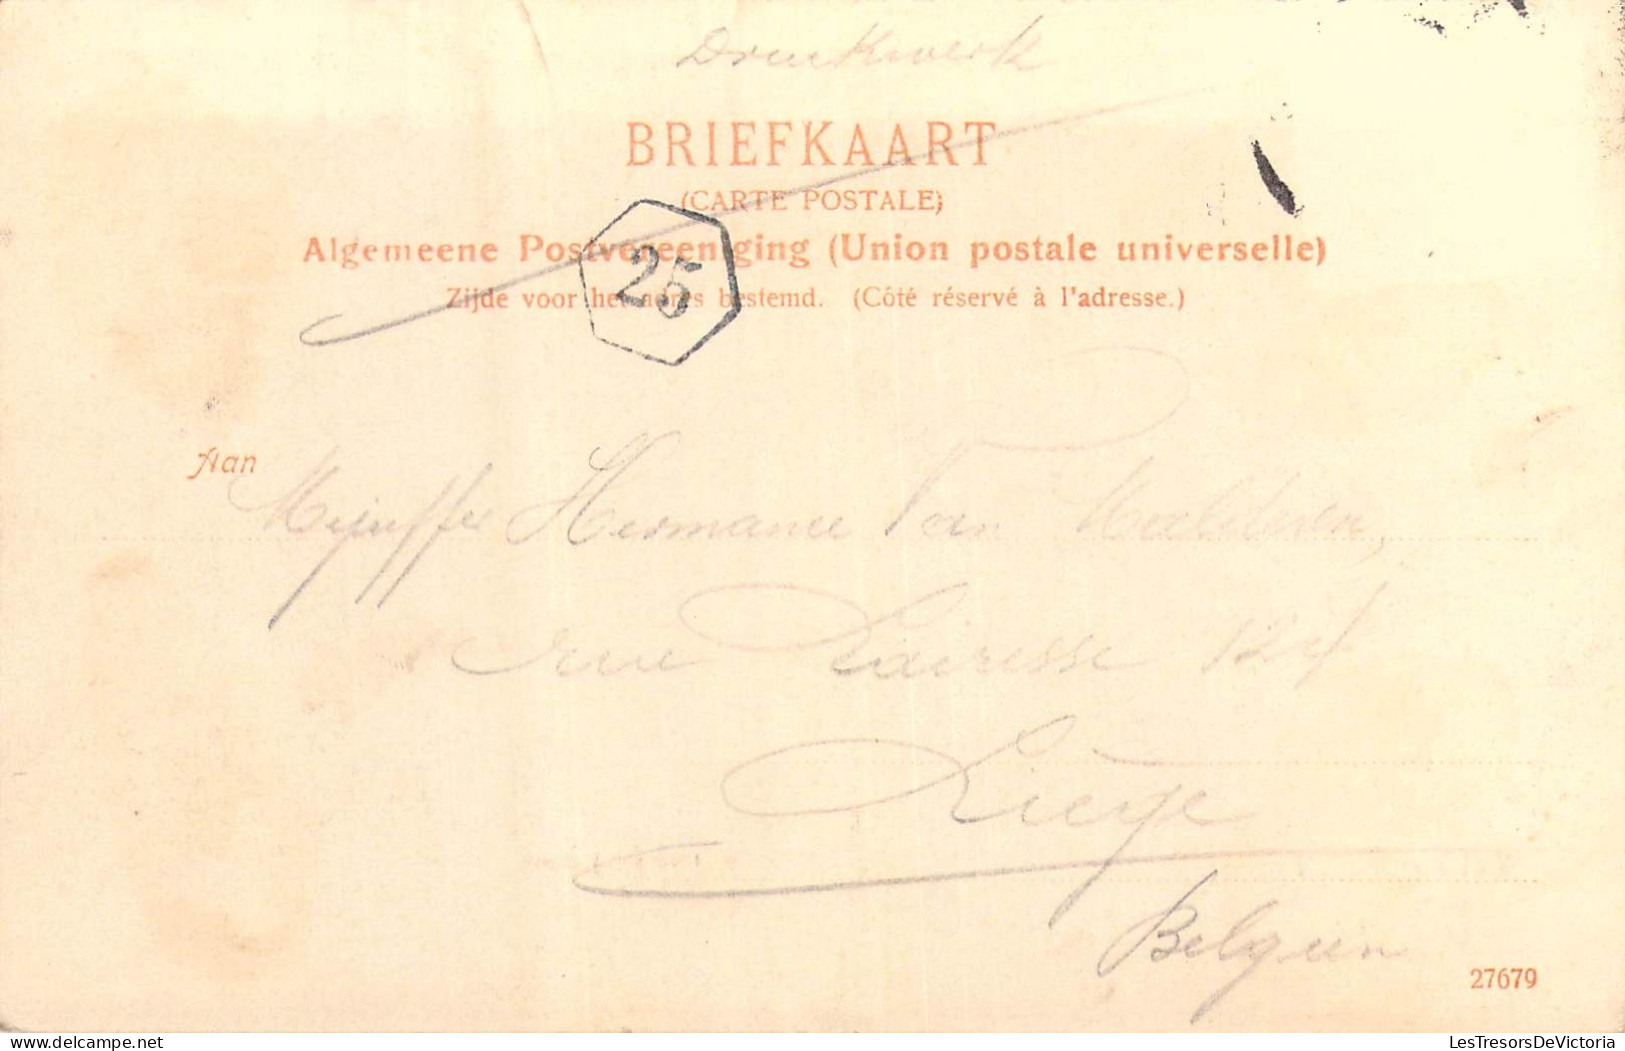 Drukwerk
BRIEFKAART
(CARTE POSTALE)
Algemeene Postvereeniging (Union postale universelle)
Zijde voor het adres bestemd. (Côté réservé à l'adresse.)
25
Aan
Mejuffer Hermance Van Malderen,
rue Lairesse 124
Liège
Belgien
27679
LesTresorsDeVictoria